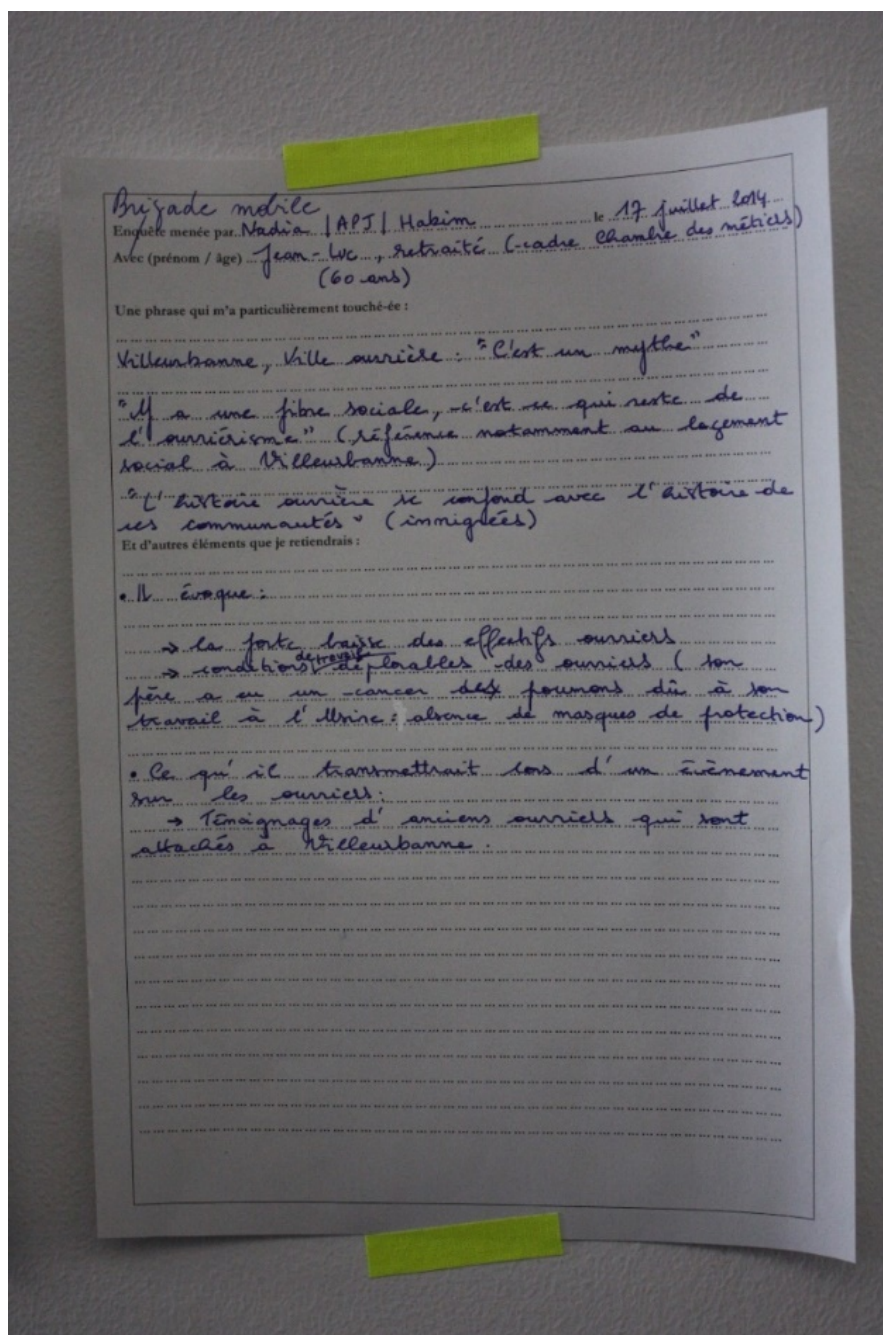 Brigade mobile
Enquête menée par Nadia / APJ / Hakim le 17 juillet 2014
Avec (prénom / âge) Jean-Luc, retraité (cadre Chambre des métiers)
(60 ans)
Une phrase qui m'a particulièrement touché·ée :
Villeurbanne, Ville ouvrière : "C'est un mythe"
"Y a une fibre sociale, c'est ce qui reste de
l'ouvriérisme" (référence notamment au logement
social à Villeurbanne)
"L'histoire ouvrière se confond avec l'histoire de
ces communautés" (immigrées)
Et d'autres éléments que je retiendrais :
• Il évoque :
→ la forte baisse des effectifs ouvriers
→ conditions de travail déplorables des ouvriers (son
père a eu un cancer des poumons dû à son
travail à l'Usine : absence de masques de protection)
• Ce qu'il transmettrait lors d'un évènement
sur les ouvriers :
→ Témoignages d'anciens ouvriers qui sont
attachés à Villeurbanne.